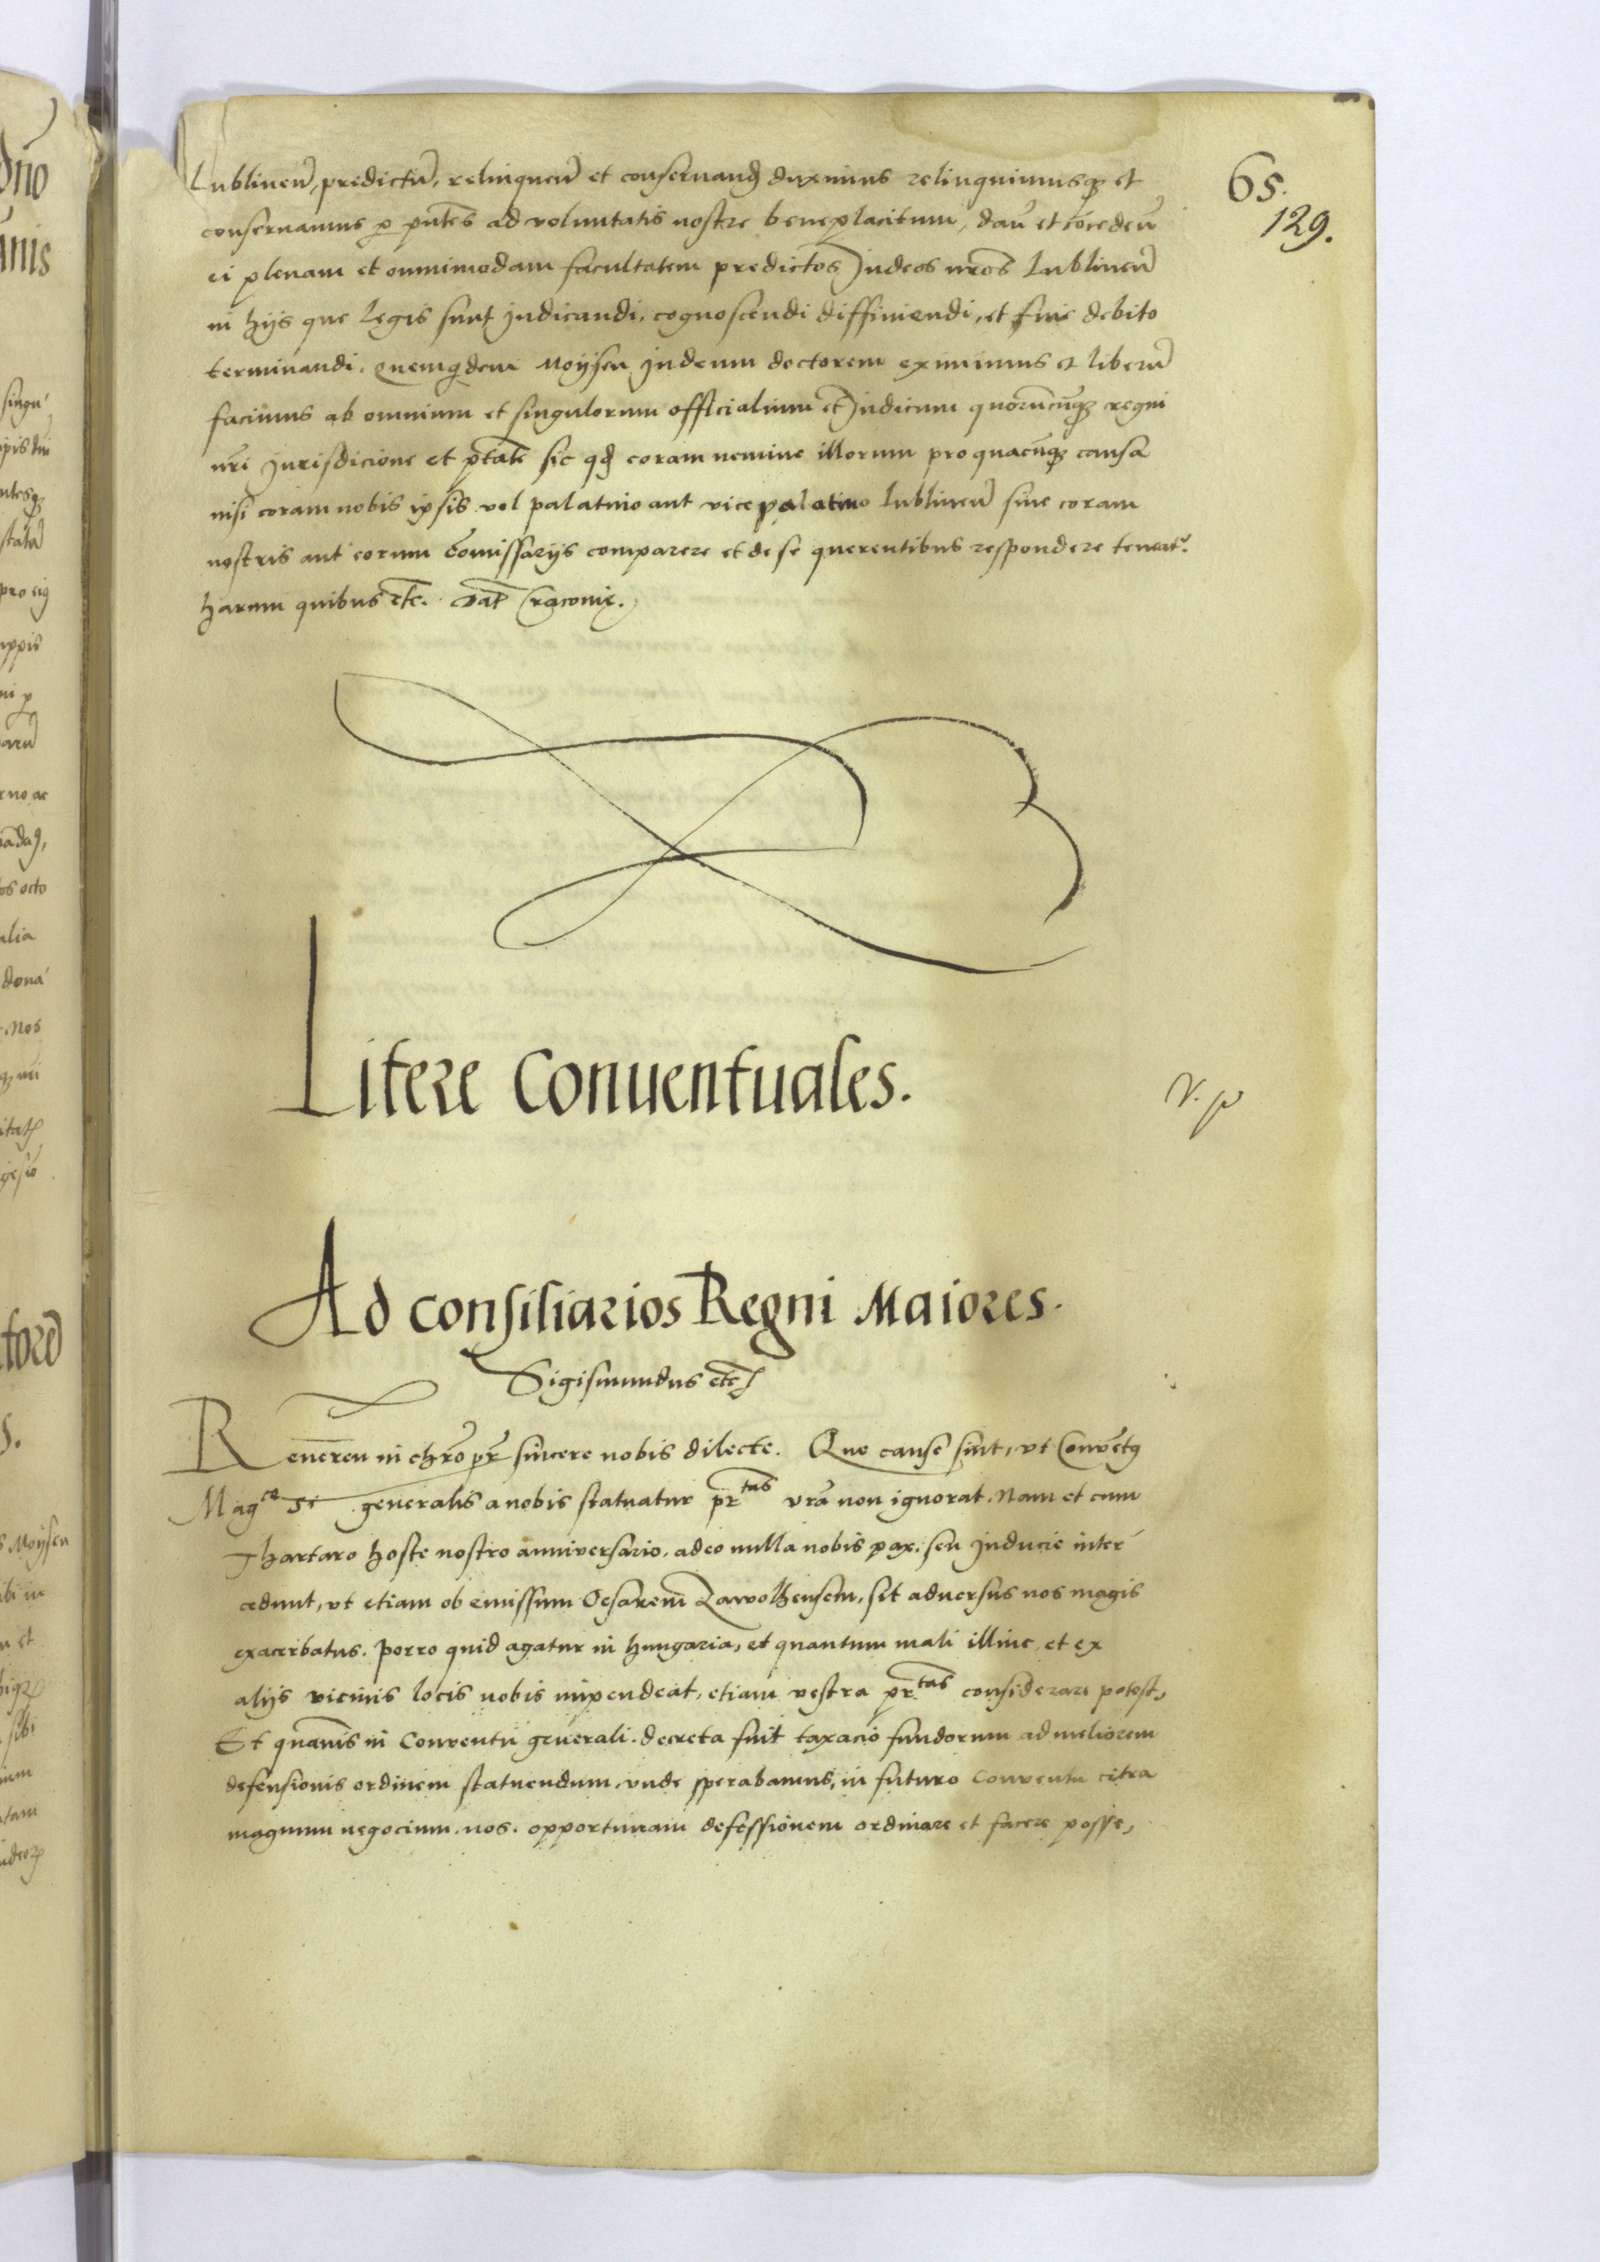 65.
129.
Lublineñ, predictũ, relinqueñ et conservandͥ duximus relinquimusqȝ et
conservamus p pñtes ad voluntatis nostre beneplacitum, dañ et cõcedeñ
ei plenam et omnimodam facultatem predictos Judeos nr̃os Lublineñ
in hijs que legis sunt judicandi, cognoscendi diffiniendi, et fine debito
terminandi. Quemqdem Moijsen judeum doctorem eximimus et liberũ
facimus ab omnium et singulorum officialium et Judicum quorũcũqȝ regni
nr̃i jurisdicione et ptãte sic qd coram nemine illorum pro quacũqȝ causa
nisi coram nobis ipsis vel palatino aut vicepalatino Lublineñ sive coram
nostris aut eorum Cõmissarijs comparere et de se querentibus respondere teneat.
harum quibus etc. Dat Cracovie.
Litere Conventuales.
V. p
Ad consiliarios Regni Maiores.
Sigismundus etc
Revereñ in chr̃o pr̃ sincere nobis dilecte. Que cause sint, ut Convẽtꝰ
Magce generalis a nobis statuatur pr̃tas vr̃a non ignorat. Nam et cum
Thartaro hoste nostro anniversario, adeo nulla nobis pax. seu inducie inter
cedunt, ut etiam ob emissum Cesarem Zawolhensem, sit adversus nos magis
exacerbatus. Porro quid agatur in hungaria, et quantum mali illinc et ex
alijs vicinis locis nobis impendeat, etiam vestra pr̃tas considerare potest,
Et quamvis in Conventu generali. decreta fuit taxacio fundorum ad meliorem
defensionis ordinem statuendum, unde sperabamus, in futuro Conventu citra
magnum negocium. nos. opportunam defessionem ordinare et facere posse,